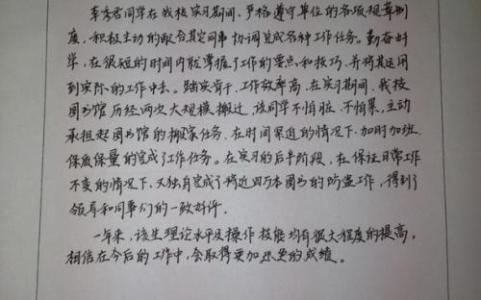 同学在我校实习期间,严格遵守单位的各项规章制
度,积极主动的配合其它同事协调完成各种工作任务。勤奋好
学,在很短的时间内就掌握了工作的要点和技巧,并将其运用
到实际的工作中去。踏实肯干,工作效率高。在实习期间,我校
图书馆历经两次大规模搬迁,该同学不怕脏、不怕累,主动
承担起图书馆的搬家任务,在时间紧迫的情况下,加时加班,
保质保量的完成了工作任务。在实习的后半阶段,在保证日常工作
不变的情况下,又独自完成了将近四万本图书的防盗工作,得到了
领导和同事们的一致好评。
一年来,该生理论水平及操作技能均有很大程度的提高,
相信在今后的工作中,会取得更加的成绩。